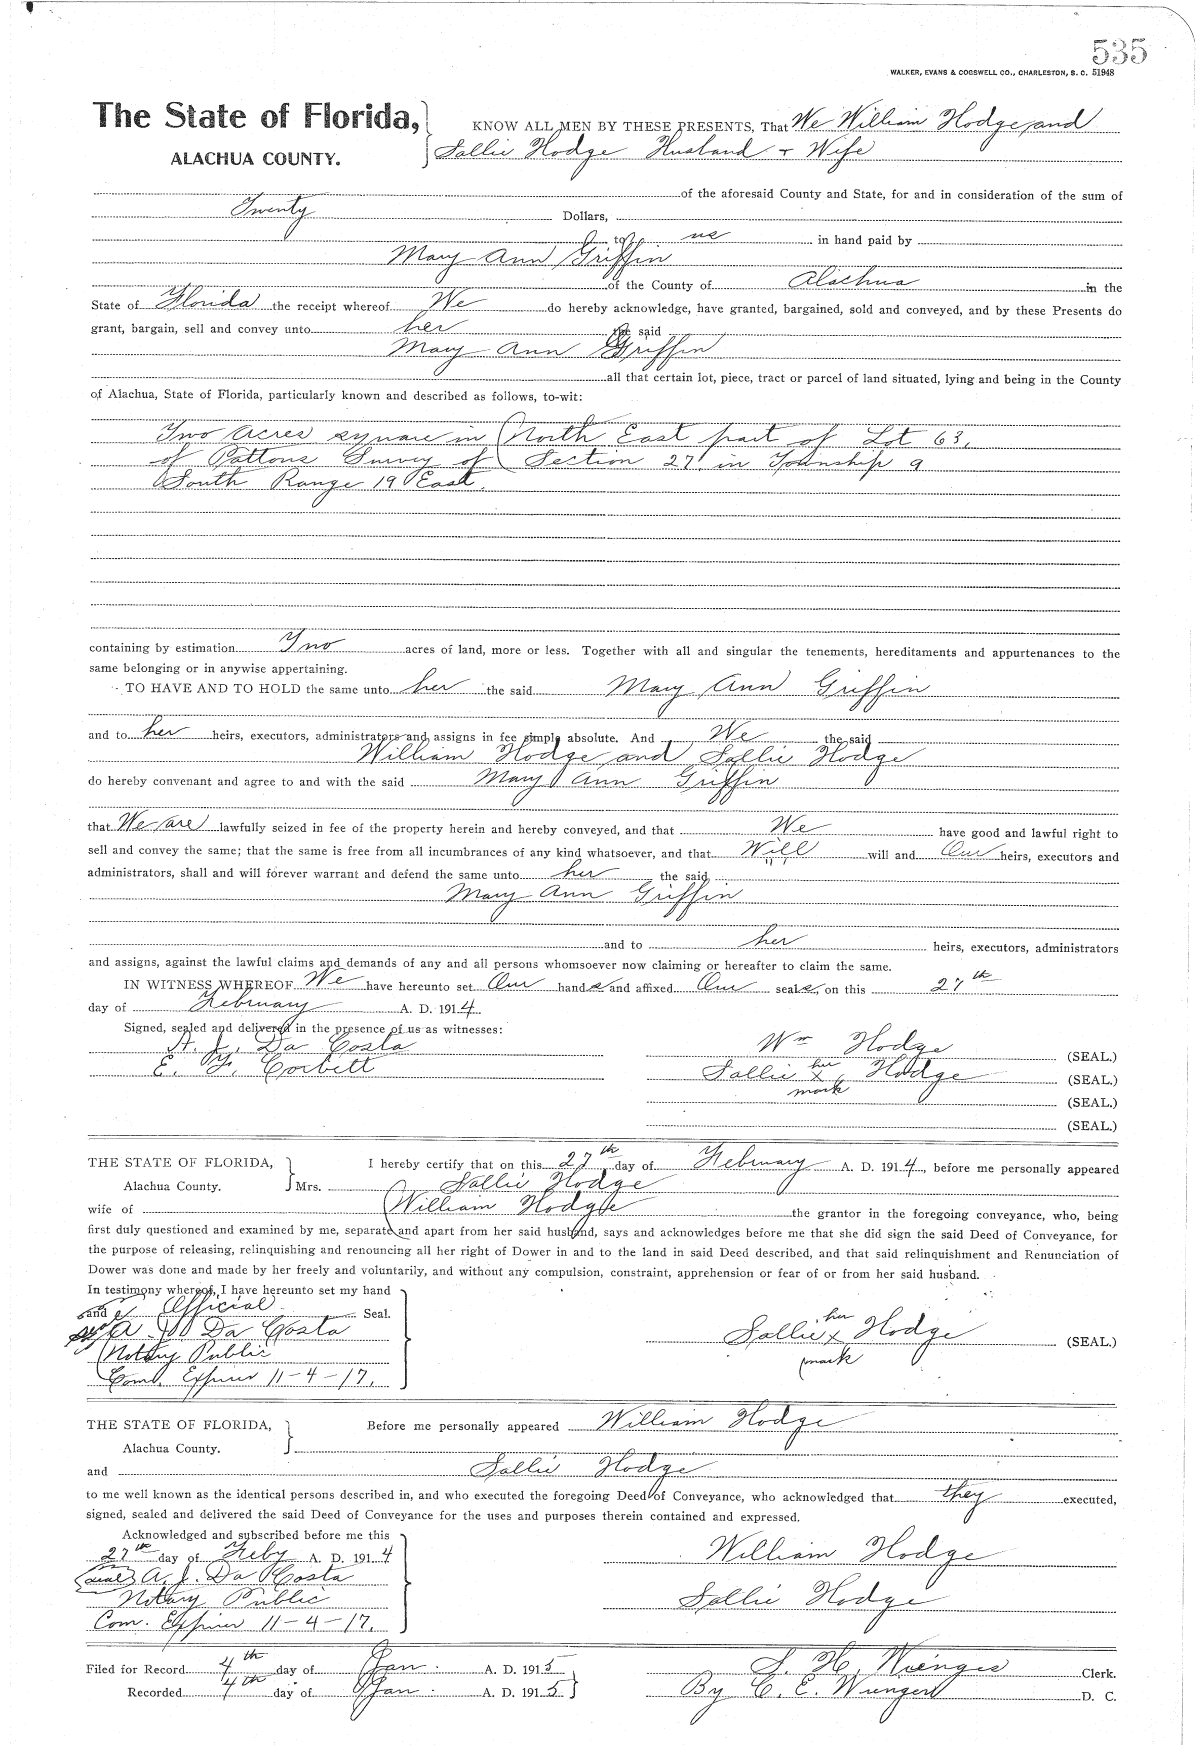 535
WALKER, EVANS & COGSWELL CO., CHARLESTON, S. C. 51948
The State of Florida,
ALACHUA COUNTY.
KNOW ALL MEN BY THESE PRESENTS, That We William Hodge and
Sallie Hodge Husband + Wife
of the aforesaid County and State, for and in consideration of the sum of
Twenty Dollars,
to us in hand paid by
Mary Ann Griffin
of the County of Alachua in the
State of Florida the receipt whereof We do hereby acknowledge, have granted, bargained, sold and conveyed, and by these Presents do
grant, bargain, sell and convey unto her the said
Mary Ann Griffin
all that certain lot, piece, tract or parcel of land situated, lying and being in the County
of Alachua, State of Florida, particularly known and described as follows, to-wit:
Two acres square in North East part of Lot 63,
of Pattons Survey of Section 27 in Township 9
South Range 19 East.
containing by estimation Two acres of land, more or less. Together with all and singular the tenements, hereditaments and appurtenances to the
same belonging or in anywise appertaining.
TO HAVE AND TO HOLD the same unto her the said Mary Ann Griffin
and to her heirs, executors, administrators and assigns in fee simple absolute. And We the said
William Hodge and Sallie Hodge
do hereby convenant and agree to and with the said Mary Ann Griffin
that We are lawfully seized in fee of the property herein and hereby conveyed, and that We have good and lawful right to
sell and convey the same; that the same is free from all incumbrances of any kind whatsoever, and that Will will and Our heirs, executors and
administrators, shall and will forever warrant and defend the same unto her the said
Mary Ann Griffin
and to her heirs, executors, administrators
and assigns, against the lawful claims and demands of any and all persons whomsoever now claiming or hereafter to claim the same.
IN WITNESS WHEREOF We have hereunto set Our hands and affixed Our seals, on this 27th
day of February A. D. 1914
Signed, sealed and delivered in the presence of us as witnesses:
A. J. Da Costa
E. Y. Corbett
Wm Hodge (SEAL.)
Sallie her x mark Hodge (SEAL.)
(SEAL.)
(SEAL.)
THE STATE OF FLORIDA,
Alachua County.
I hereby certify that on this 27th day of February A. D. 1914, before me personally appeared
Mrs. Sallie Hodge
wife of William Hodge the grantor in the foregoing conveyance, who, being
first duly questioned and examined by me, separate and apart from her said husband, says and acknowledges before me that she did sign the said Deed of Conveyance, for
the purpose of releasing, relinquishing and renouncing all her right of Dower in and to the land in said Deed described, and that said relinquishment and Renunciation of
Dower was done and made by her freely and voluntarily, and without any compulsion, constraint, apprehension or fear of or from her said husband.
In testimony whereof, I have hereunto set my hand
and Official Seal.
A. J. Da Costa
Notary Public
Com. Expires 11-4-17.
Sallie her x mark Hodge (SEAL.)
THE STATE OF FLORIDA,
Alachua County.
Before me personally appeared William Hodge
and Sallie Hodge
to me well known as the identical persons described in, and who executed the foregoing Deed of Conveyance, who acknowledged that they executed,
signed, sealed and delivered the said Deed of Conveyance for the uses and purposes therein contained and expressed.
Acknowledged and subscribed before me this
27th day of Feby A. D. 1914
(seal) A. J. Da Costa
Notary Public
Com. Expires 11-4-17.
William Hodge
Sallie Hodge
Filed for Record 4th day of Jan. A. D. 1915
Recorded 4th day of Jan. A. D. 1915
S. H. Wienges Clerk.
By C. E. Wienges D. C.